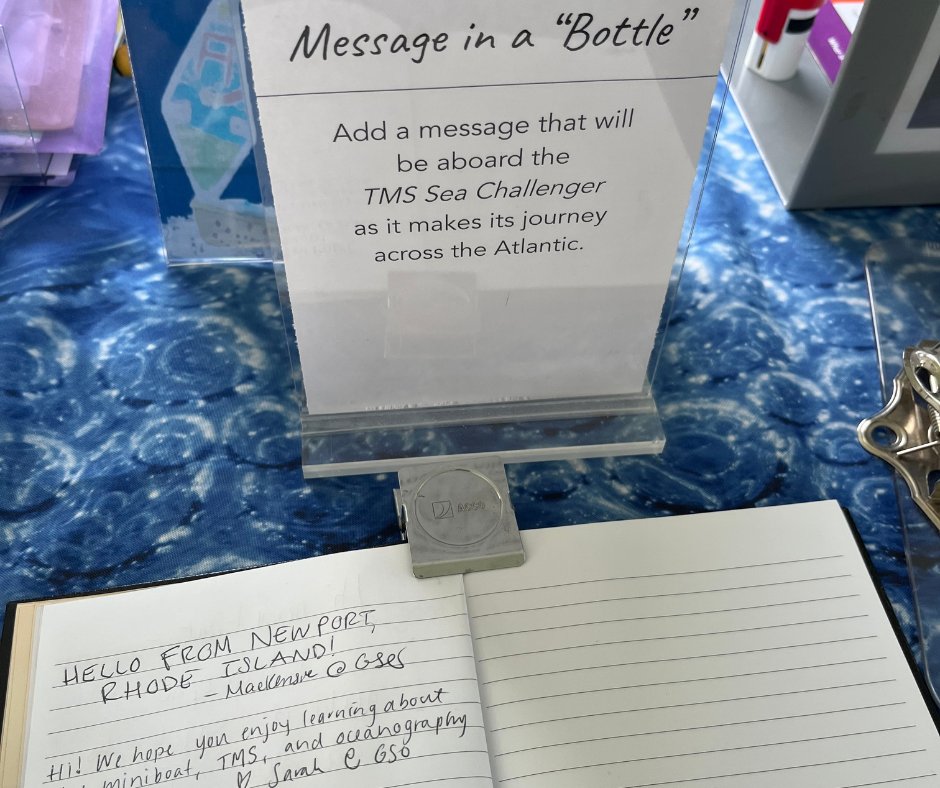 Message in a “Bottle”
Add a message that will
be aboard the
TMS Sea Challenger
as it makes its journey
across the Atlantic.
HELLO FROM NEWPORT,
RHODE ISLAND!
- Mackensie @ GSES
Hi! We hope you enjoy learning about
miniboat, TMS, and oceanography
♡ Sarah @ GSO